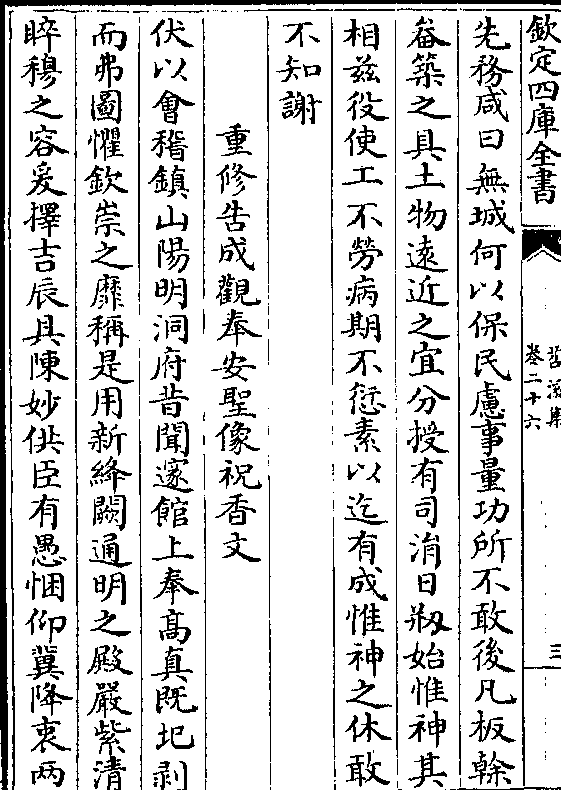 欽定四庫全書
卷二十六
三
先務咸曰無城何以保民慮事量功所不敢後凡板榦
畚築之具土物遠近之宜分授有司涓日剏始惟神其
相兹役使工不勞病期不愆素以迄有成惟神之休敢
不知謝
重修告成觀奉安聖像祝香文
伏以會稽鎮山陽明洞府昔聞邃館上奉髙真既圮剥
而弗圖懼欽崇之靡稱是用新絳闕通明之殿嚴紫清
睟穆之容爰擇吉辰具陳妙供臣有愚悃仰冀降衷两